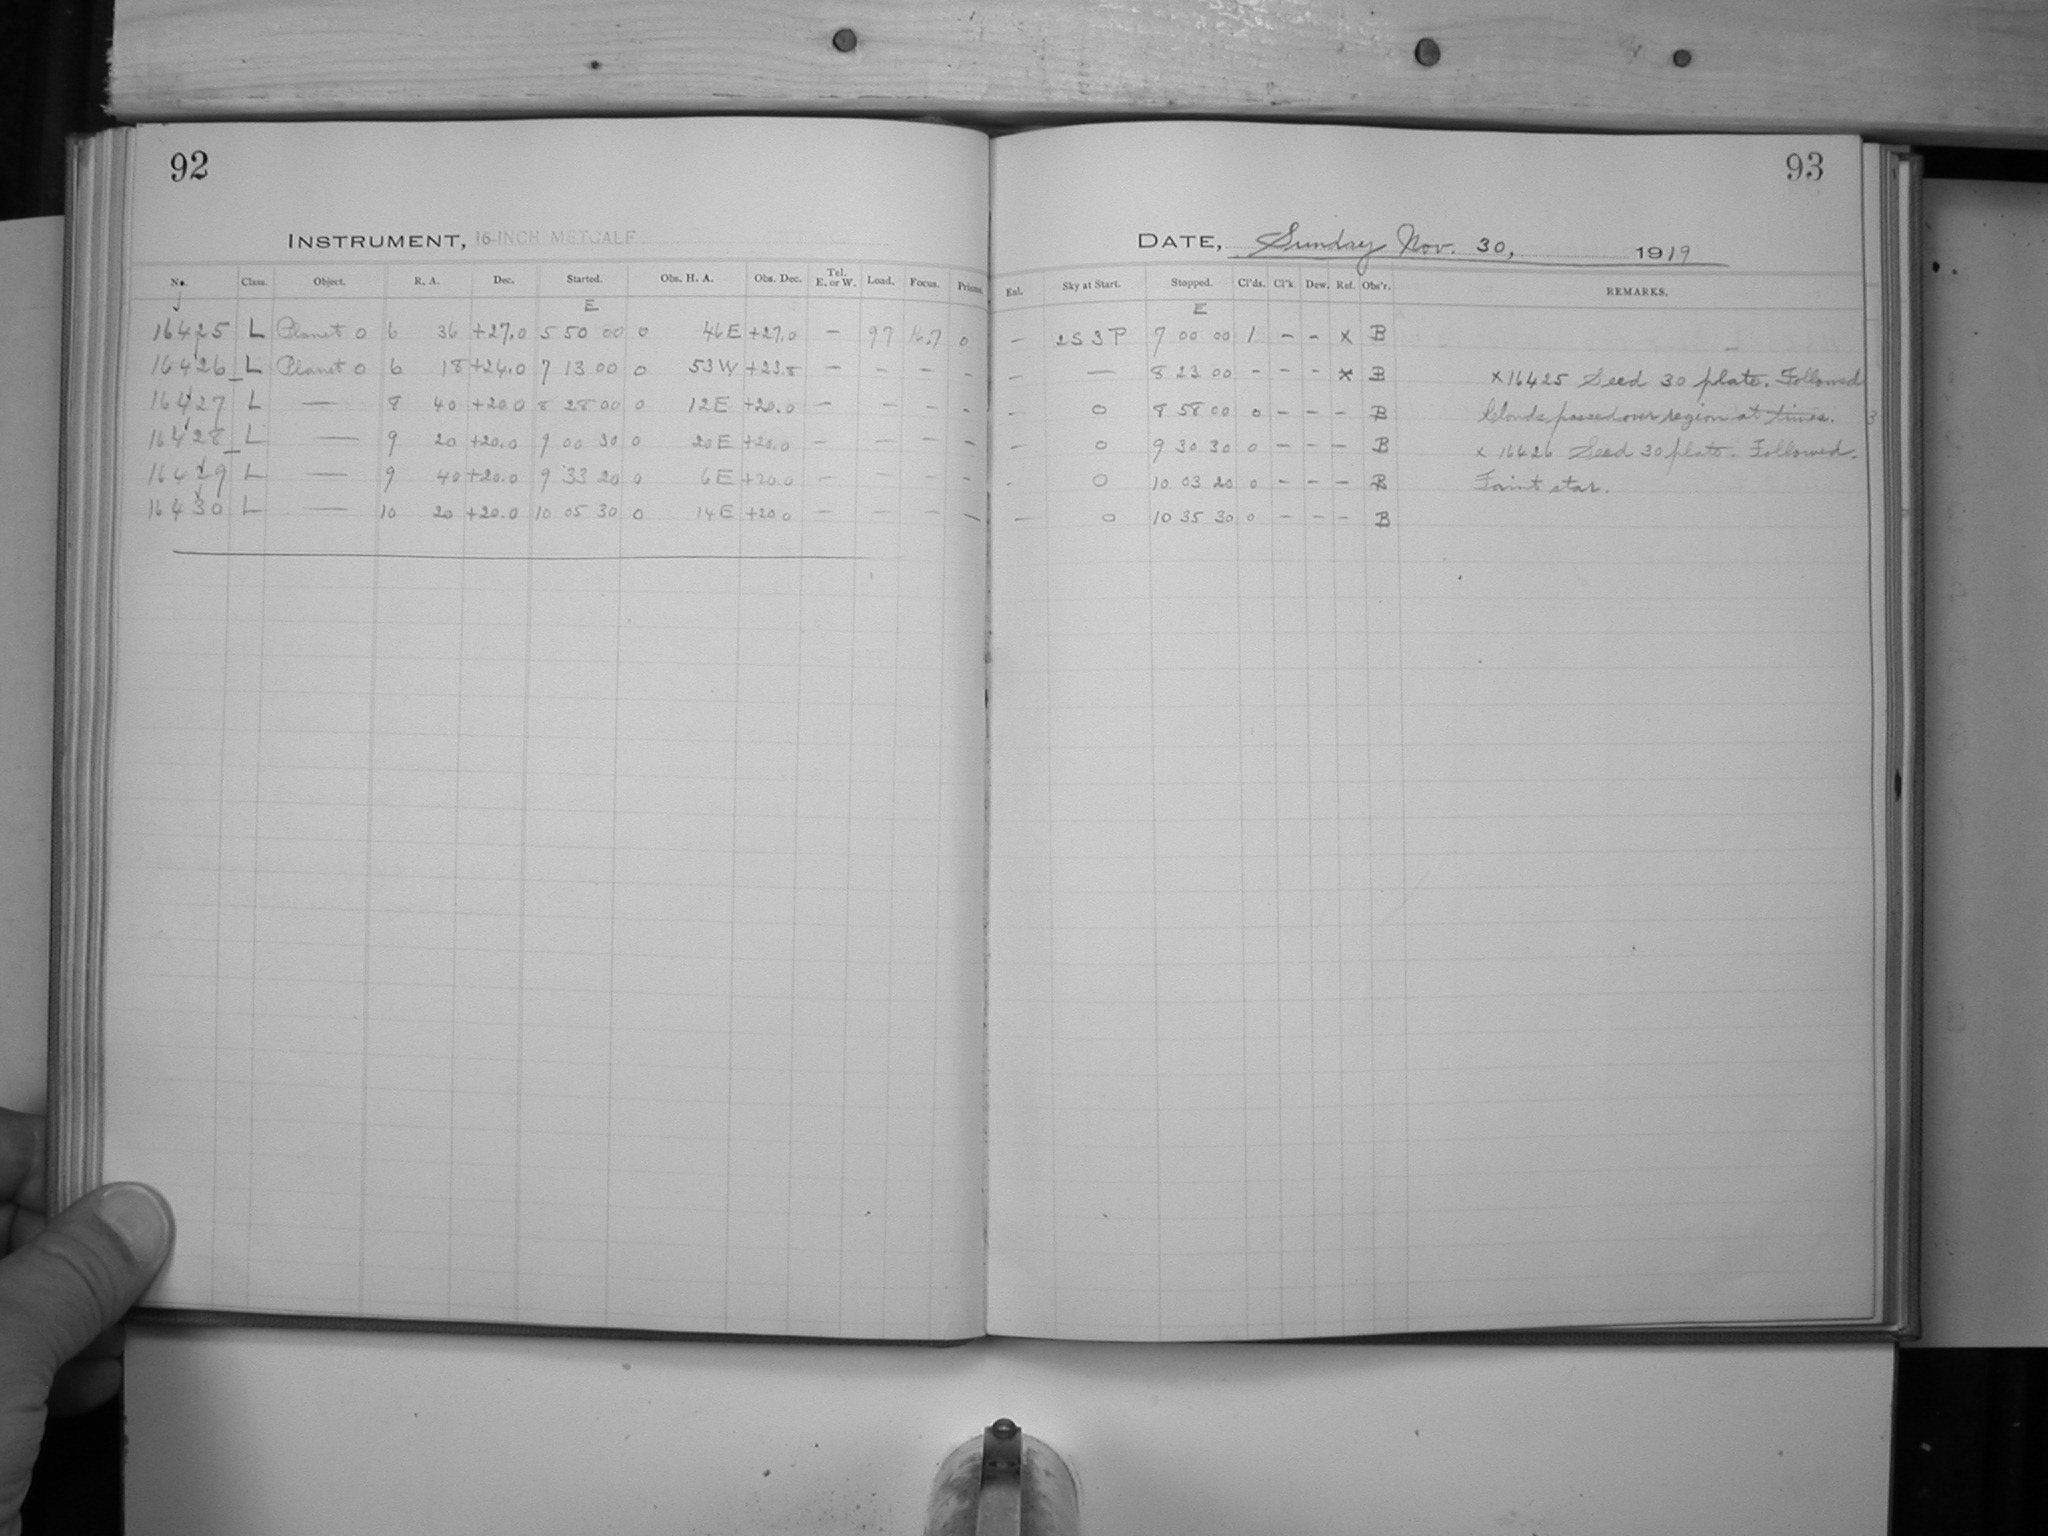 92
93
INSTRUMENT, 16-INCH METCALF
DATE, Sunday Nov. 30, 1919
No. Class. Object. R. A. Dec. Started. Obs. H. A. Obs. Dec. Tel. E. or W. Load. Focus. Prisms.
Exl. Sky at Start. Stopped. Cl'ds. Cl'k Dew. Ref. Obs'r. REMARKS.
E
E
16425 L Planet O 6 36 +27.0 5 50 00 0 46 E +27.0 — 97 16.7 0
— 2S3P 7 00 00 1 – – x B
16426 L Planet O 6 18 +24.0 7 13 00 0 53 W +23.8 — – – –
– — 8 23 00 – – – x B x 16425 Seed 30 plate. Followed
16427 L — 8 40 +20.0 8 28 00 0 12 E +20.0 — – – –
– 0 8 58 00 0 – – – B Clouds passed over region at times.
16428 L — 9 20 +20.0 9 00 30 0 20 E +20.0 — – – –
– 0 9 30 30 0 – – – B x 16426 Seed 30 plate. Followed.
16429 L — 9 40 +20.0 9 33 20 0 6 E +20.0 — – – –
- 0 10 03 20 0 – – – B Faint star.
16430 L — 10 20 +20.0 10 05 30 0 14 E +20.0 — – – –
— 0 10 35 30 0 – – – B